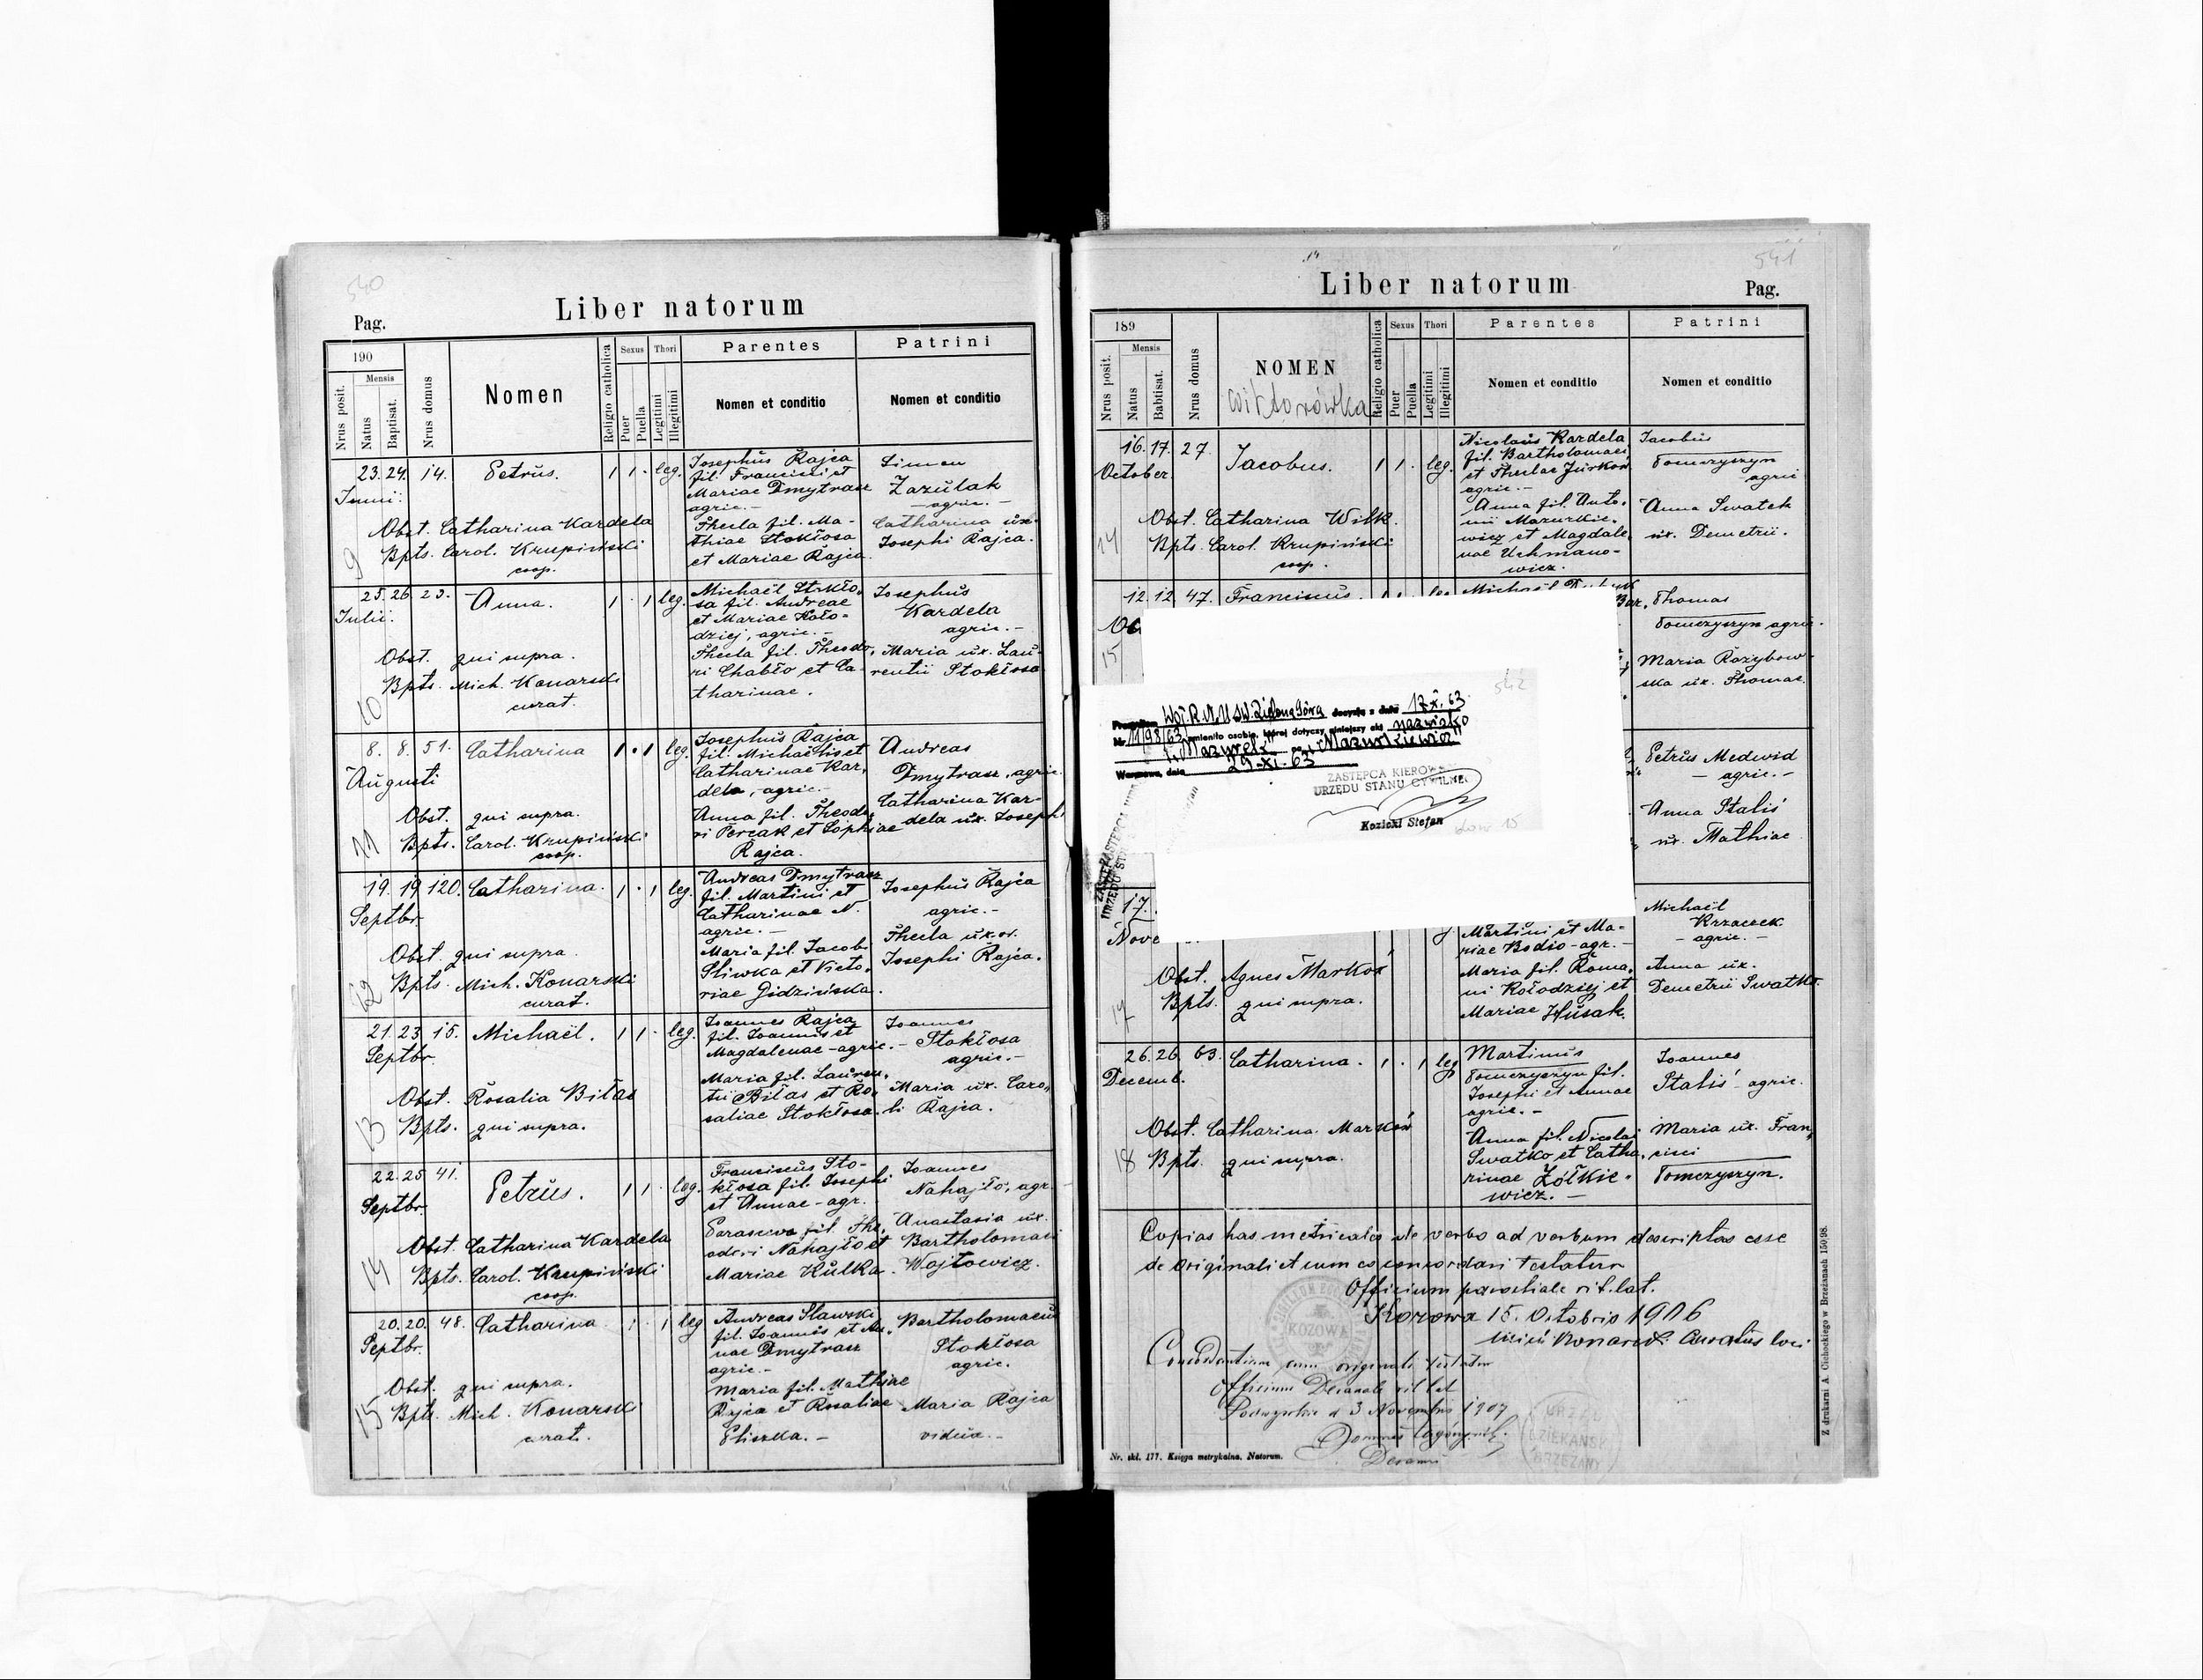 540
Liber natorum
Pag.
190
Nrus posit.
Mensis
Natus
Baptisat.
Nrus domus
Nomen
Religio catholica
Sexus
Puer
Puella
Thori
Legitimi
Illegitimi
Parentes
Nomen et conditio
Patrini
Nomen et conditio
23. 24. 14. Petrus. 1 1 · leg.
Junii.
Josephus Rajca
fil. Francisci et
Mariae Dmytrasz
agric. –
Thecla fil. Ma-
thiae Stokłosa
et Mariae Rajca.
Simeon
Zazulak
– agric. –
Catharina ux.
Josephi Rajca.
Obst. Catharina Kardela
Bpts. Carol. Krupiński
coop.
9
25. 26. 23. Anna. 1 · 1 leg.
Julii.
Michaël Stokło-
sa fil. Andreae
et Mariae Koło-
dziej, agric. –
Thecla fil. Theodo-
ri Chabło et Ca-
tharinae.
Josephus
Kardela
agric. –
Maria ux. Lau-
rentii Stokłosa
Obst. qui supra.
Bpts. Mich. Konarski
curat.
10
8. 8. 51. Catharina 1 · 1 leg.
Augusti
Josephus Rajca
fil. Michaëlis et
Catharinae Kar-
dela, – agric. –
Anna fil. Theodo-
ri Percak et Sophiae
Rajca.
Andreas
Dmytrasz, agric.
Catharina Kar-
dela ux. Josephi
Obst. qui supra.
Bpts. Carol. Krupiński
coop.
11
19. 19. 120. Catharina. 1 · 1 leg.
Septbr.
Andreas Dmytrasz
fil. Martini et
Catharinae N.
agric. –
Maria fil. Jacobi
Śliwka et Victo-
riae Gidzińska.
Josephus Rajca
agric. –
Thecla uxor.
Josephi Rajca.
Obst. qui supra.
Bpts. Mich. Konarski
curat.
12
21. 23. 15. Michaël. 1 1 · leg.
Septbr.
Joannes Rajca
fil. Joannis et
Magdalenae – agric. –
Maria fil. Lauren-
tii Bilas et Ro-
saliae Stokłosa.
Joannes
Stokłosa
agric. –
Maria ux. Caro-
li Rajca.
Obst. Rosalia Bilas
Bpts. qui supra.
13
22. 25. 41. Petrus. 1 1 · leg.
Septbr.
Franciscus Sto-
kłosa fil. Josephi
et Annae – agr.
Parasceva fil. The-
odori Nahajło et
Mariae Kulka.
Joannes
Nahajło, agr.
Anastasia ux.
Bartholomaei
Wojtowicz.
Obst. Catharina Kardela
Bpts. Carol. Krupiński
coop.
14
20. 20. 48. Catharina. 1 · 1 leg
Septbr.
Andreas Sławski
fil. Joannis et An-
nae Dmytrasz
agric. –
Maria fil. Mathiae
Rajca et Rosaliae
Pliszka. –
Bartholomaeus
Stokłosa
agric.
Maria Rajca
vidua. –
Obst. qui supra.
Bpts. Mich. Konarski
curat.
15
541
Liber natorum
Pag.
189
Nrus posit.
Mensis
Natus
Babtisat.
Nrus domus
NOMEN
Wiktorówka
Religio catholica
Sexus
Puer
Puella
Thori
Legitimi
Illegitimi
Parentes
Nomen et conditio
Patrini
Nomen et conditio
16. 17. 27. Jacobus. 1 1 · leg.
October.
Nicolaus Kardela
fil. Bartholomaei
et Theclae Jurkow
agric. –
Anna fil. Anto-
nii Mazurkie-
wicz et Magdale-
nae Uchmano-
wicz.
Jacobus
Tomczyszyn
agric
Anna Swatek
ux. Demetrii.
Obst. Catharina Wilk.
Bpts. Carol. Krupiński
coop.
14
12. 12. 47. Franciscus.
15
Thomas
Tomczyszyn agric.
Maria Rozybow-
ska ux. Thomae.
542
Woj. R. N. USW. Zielona Góra decyzją z dnia 17 X. 63
Nr 11/98/63 zmieniło osobie, której dotyczy niniejszy akt nazwisko
z Mazurek na Mazurkiewicz
Warszawa, dnia 29-XI-63
ZASTĘPCA KIEROW
URZĘDU STANU CYWILNE
Kozicki Stefan
Petrus Medwid
– agric. –
Anna Staliś
ux. Mathiae
17.
Nove
Martini et Ma-
riae Bodio – agr. –
Maria fil. Roma-
ni Kołodziej et
Mariae Husak.
Michaël
Krzaczek
– agric. –
Anna ux.
Demetrii Swatko.
Obst. Agnes Markow
Bpts. qui supra.
17
26. 26. 63. Catharina. 1 · 1 leg
Decemb.
Martinus
Tomczyszyn fil.
Josephi et Annae
agric. –
Anna fil. Nicolai
Swatko et Catha-
rinae Żółkie-
wicz. –
Joannes
Staliś – agric.
Maria ux. Fran-
cisci
Tomczyszyn.
Obst. Catharina Marków
Bpts. qui supra.
18
Copias has metricales de verbo ad verbum descriptas esse
de originali et cum eo concordari testatur
Officium parochiale rit. lat.
Kozowa 15. Octobris 1906
Concordantiam cum originali testatur
Officium Decanale rit lat
d 3 Novembris 1907
KOZOWA
URZĄD
DZIEKAŃSK
BRZEŻANY
Nr. skł. 177. Księga metrykalna. Natorum.
Z drukarni A. Cichockiego w Brzeżanach 150/98.